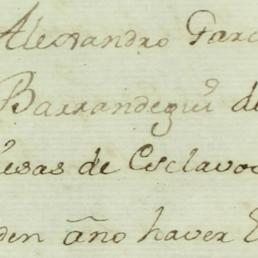 Alexandro Garc
Barrandegui de
esas de Esclavos
den año haver E